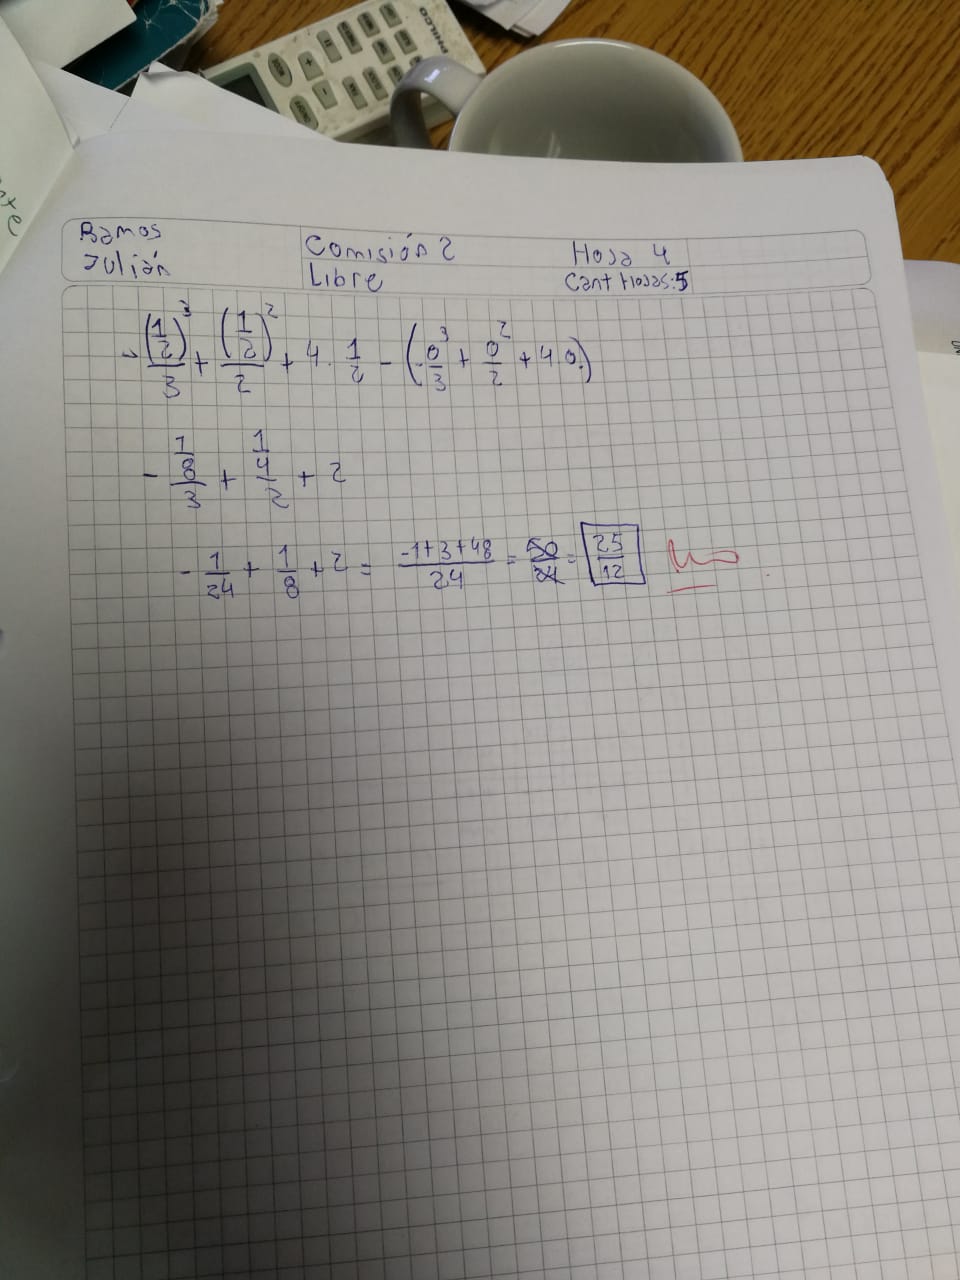 PHILCO
Ramos
Julián
Comisión 2
Libre
Hoja 4
Cant Hojas: 5
-(1/2)³/3 + (1/2)²/2 + 4 . 1/2 - (-0³/3 + 0²/2 + 4.0)
- 1/8/3 + 1/4/2 + 2
- 1/24 + 1/8 + 2 = -1+3+48/24 = 50/24 = 25/12